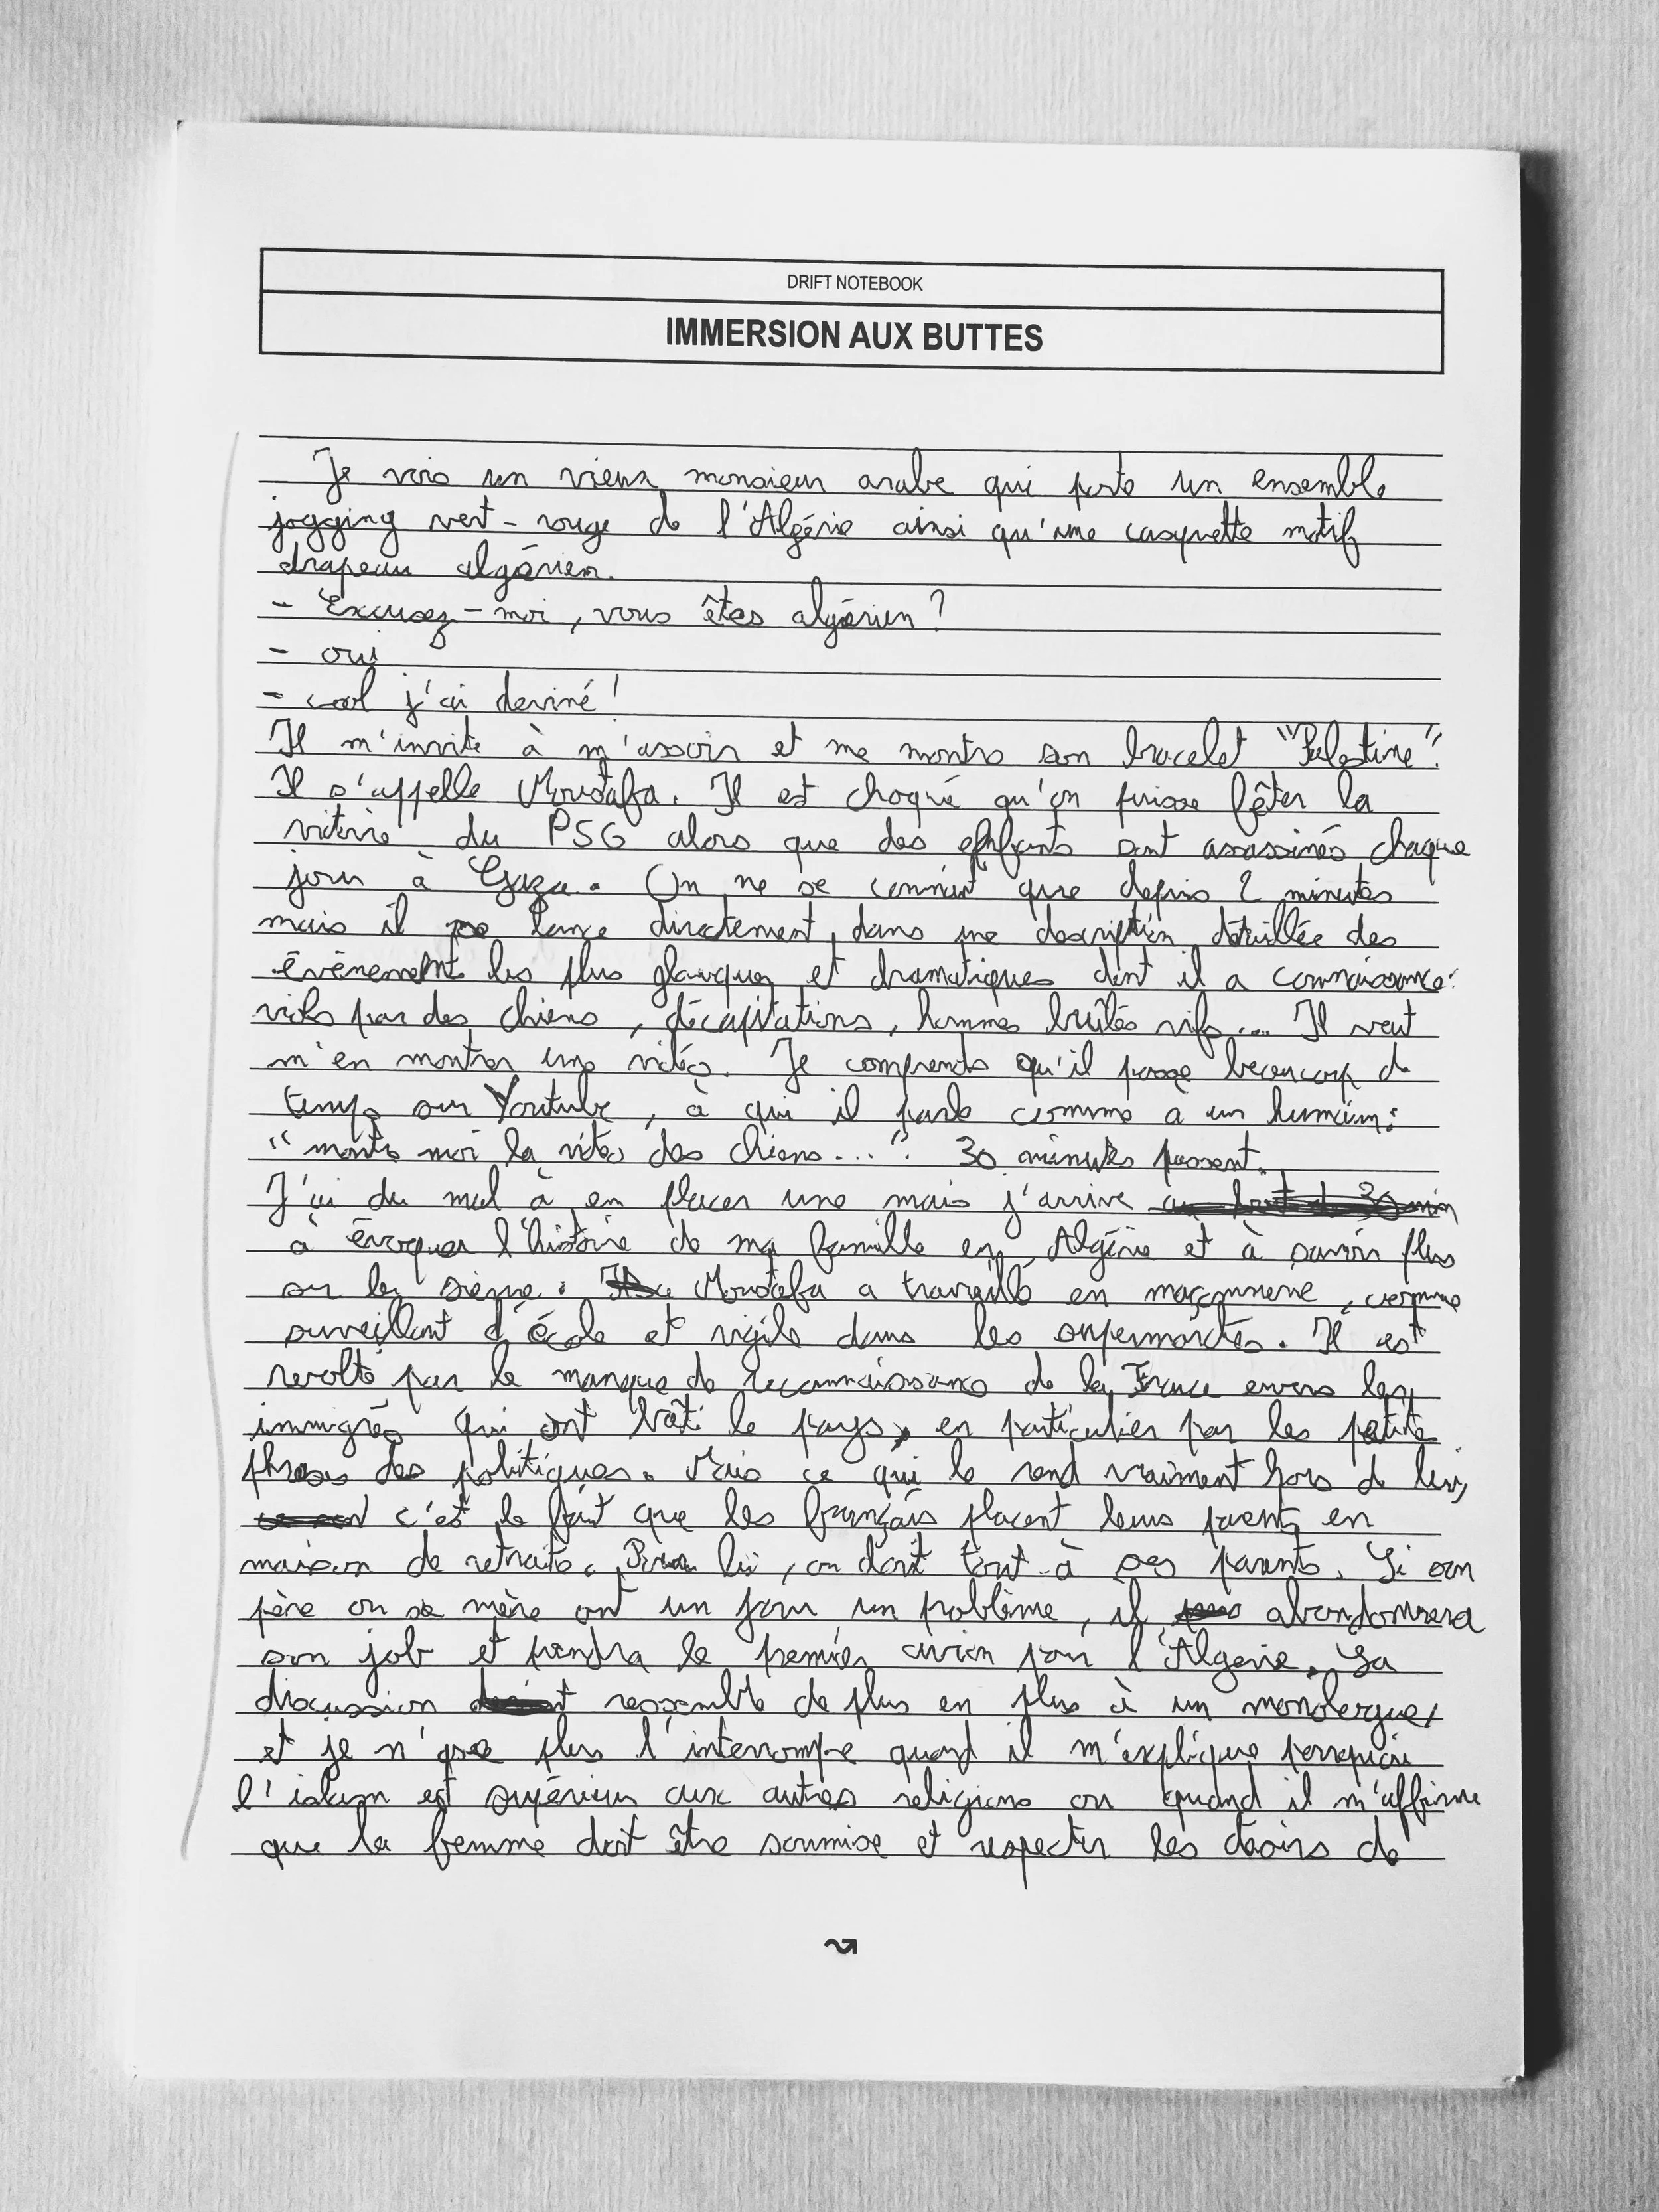 DRIFT NOTEBOOK
IMMERSION AUX BUTTES
Je vois un vieux monsieur arabe qui porte un ensemble
jogging vert-rouge de l'Algérie ainsi qu'une casquette motif
drapeau algérien.
- Excusez-moi, vous êtes algérien ?
- oui
- cool j'ai deviné !
Il m'invite à m'assoir et me montre son bracelet "Palestine".
Il s'appelle Moustafa. Il est choqué qu'on puisse fêter la
victoire du PSG alors que des enfants sont assassinés chaque
jour à Gaza. On ne se connait que depuis 2 minutes
mais il se lance directement dans une description détaillée des
évènements les plus glauques et dramatiques dont il a connaissance :
viols par des chiens, décapitations, hommes brûlés vifs... Il veut
m'en montrer une vidéo. Je comprends qu'il passe beaucoup de
temps sur Youtube, à qui il parle comme à un humain :
"montre moi la vidéo des chiens...". 30 minutes passent.
J'ai du mal à en placer une mais j'arrive
à évoquer l'histoire de ma famille en Algérie et à savoir plus
sur la sienne. Moustafa a travaillé en maçonnerie, comme
surveillant d'école et vigile dans les supermarchés. Il est
revolté par le manque de reconnaissance de la France envers les
immigrés qui ont bâti le pays, en particulier par les petites
phrases des politiques. Mais ce qui le rend vraiment hors de lui,
c'est le fait que les français placent leurs parents en
maison de retraite. Pour lui, on doit tout à ses parents. Si son
père ou sa mère ont un jour un problème, il abandonnera
son job et prendra le premier avion pour l'Algerie. La
discussion ressemble de plus en plus à un monologue,
et je n'ose plus l'interrompre quand il m'explique pourquoi
l'islam est supérieur aux autres religions ou quand il m'affirme
que la femme doit être soumise et respecter les désirs de